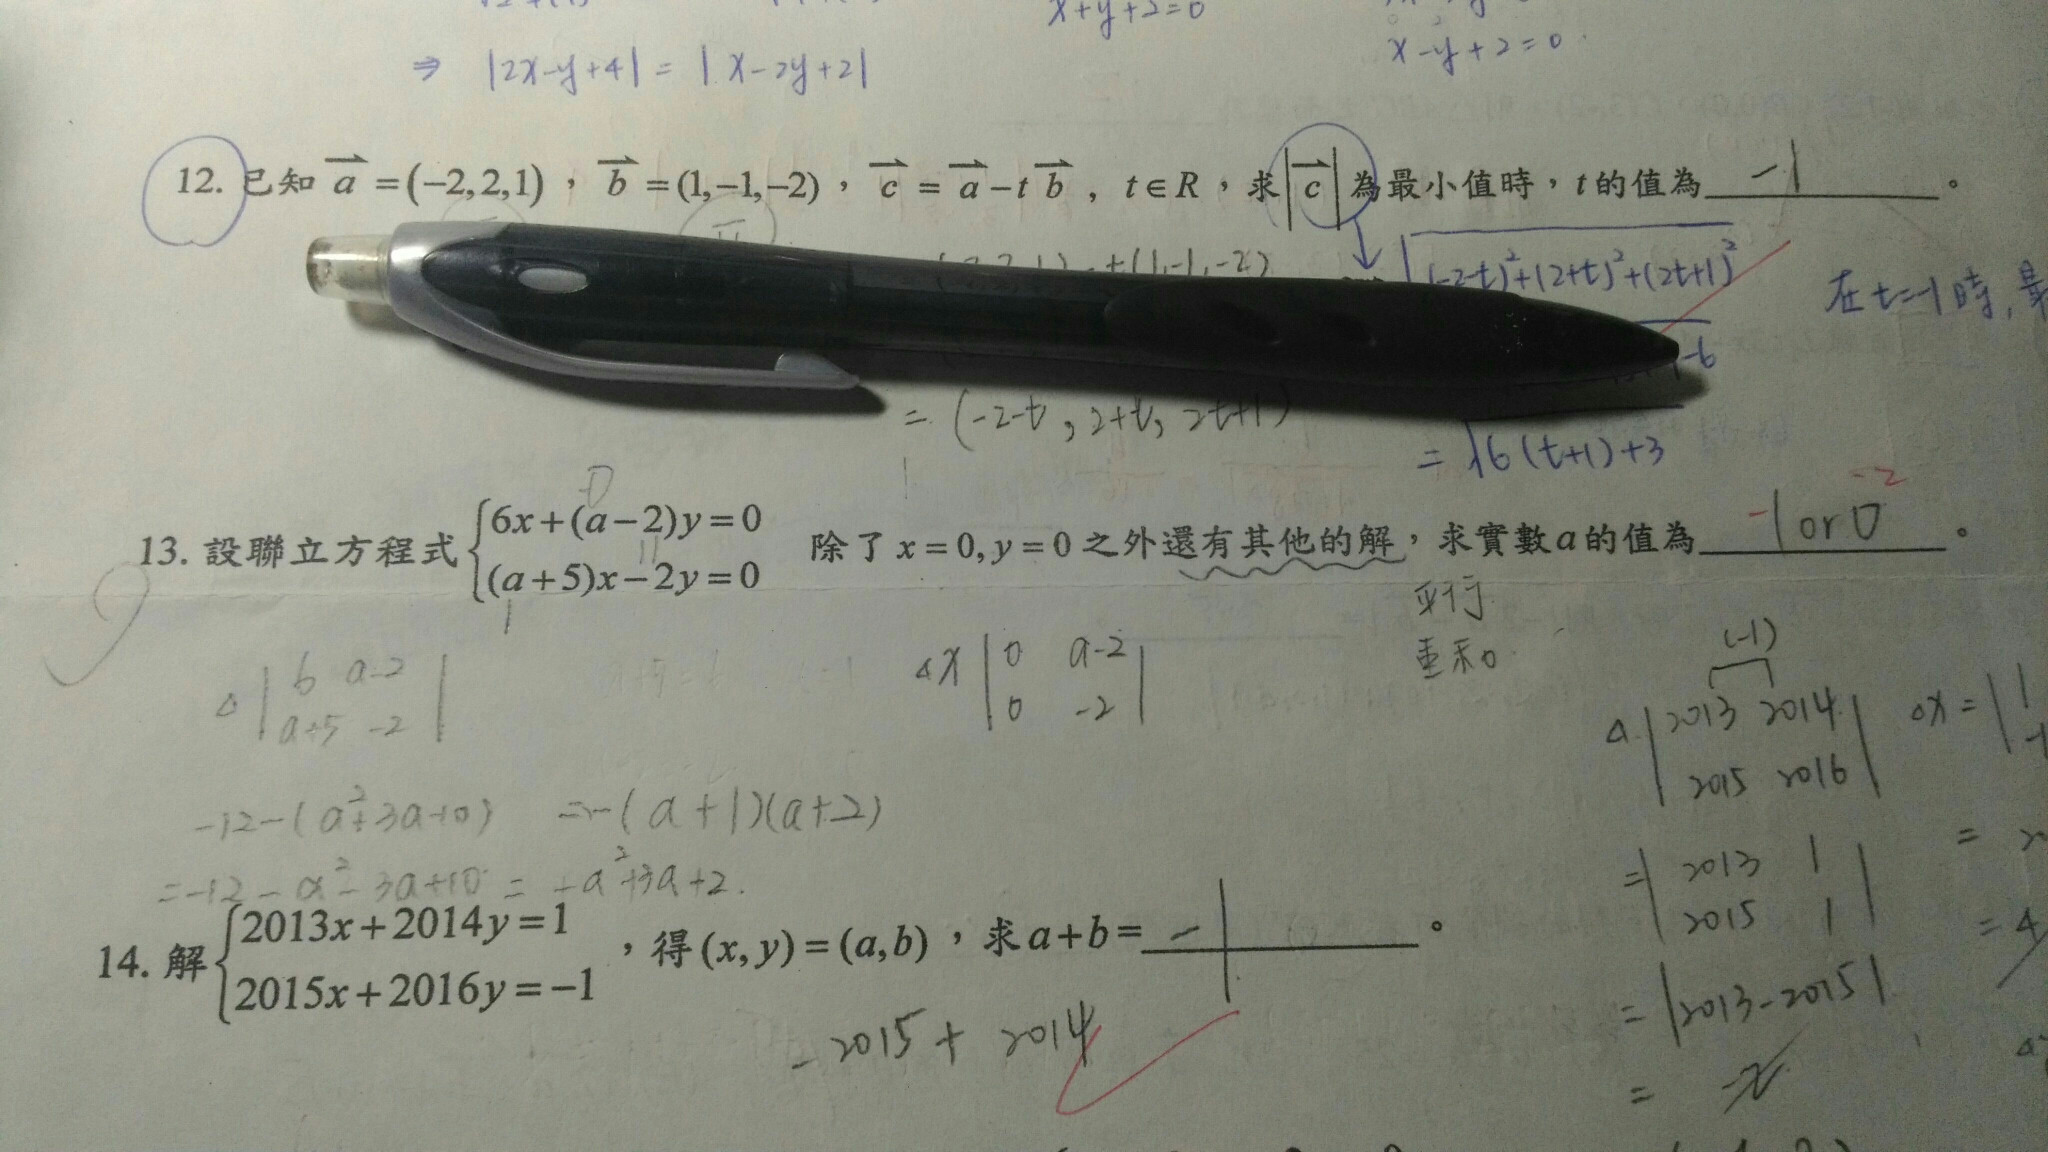 x+y+2=0
x-y+2=0
⇒ |2x-y+4| = |x-2y+2|
12. 已知 a = (-2,2,1)，b = (1,-1,-2)，c = a - t b , t∈R，求|c|為最小值時，t的值為 -1 。
√(-2-t)²+(2+t)²+(2t+1)²
在t=-1時,
-6
= (-2-t, 2+t, 2t+1)
= √6(t+1)+3
13. 設聯立方程式 {6x+(a-2)y=0
(a+5)x-2y=0
除了 x=0, y=0 之外還有其他的解，求實數a的值為 -1 or 0 -2 。
平行
重和
Δ | 6 a-2
a+5 -2 |
Δx | 0 a-2
0 -2 |
(-1)
Δ | 2013 2014
2015 2016 |
Δx = | 1
-12-(a²+3a-10) =-(a+1)(a+2)
=-12-a²-3a+10 = -a²+3a+2.
= | 2013 1
2015 1 |
= |2013-2015|
= -2
14. 解 {2013x+2014y=1
2015x+2016y=-1
，得(x,y)=(a,b)，求a+b= -1 。
-2015+2014